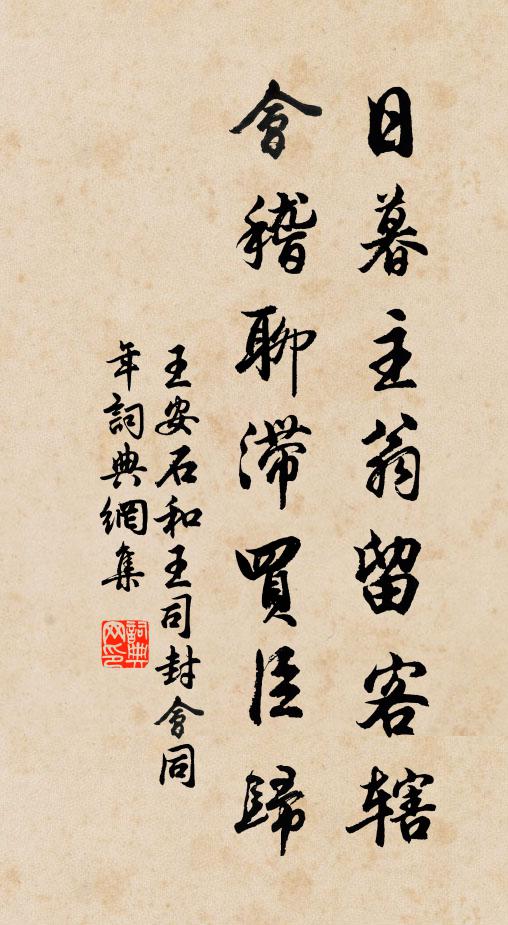 日暮主翁留客轄
會稽聊滯買臣歸
王安石和王司封會同
年詞典網集
詞典網印